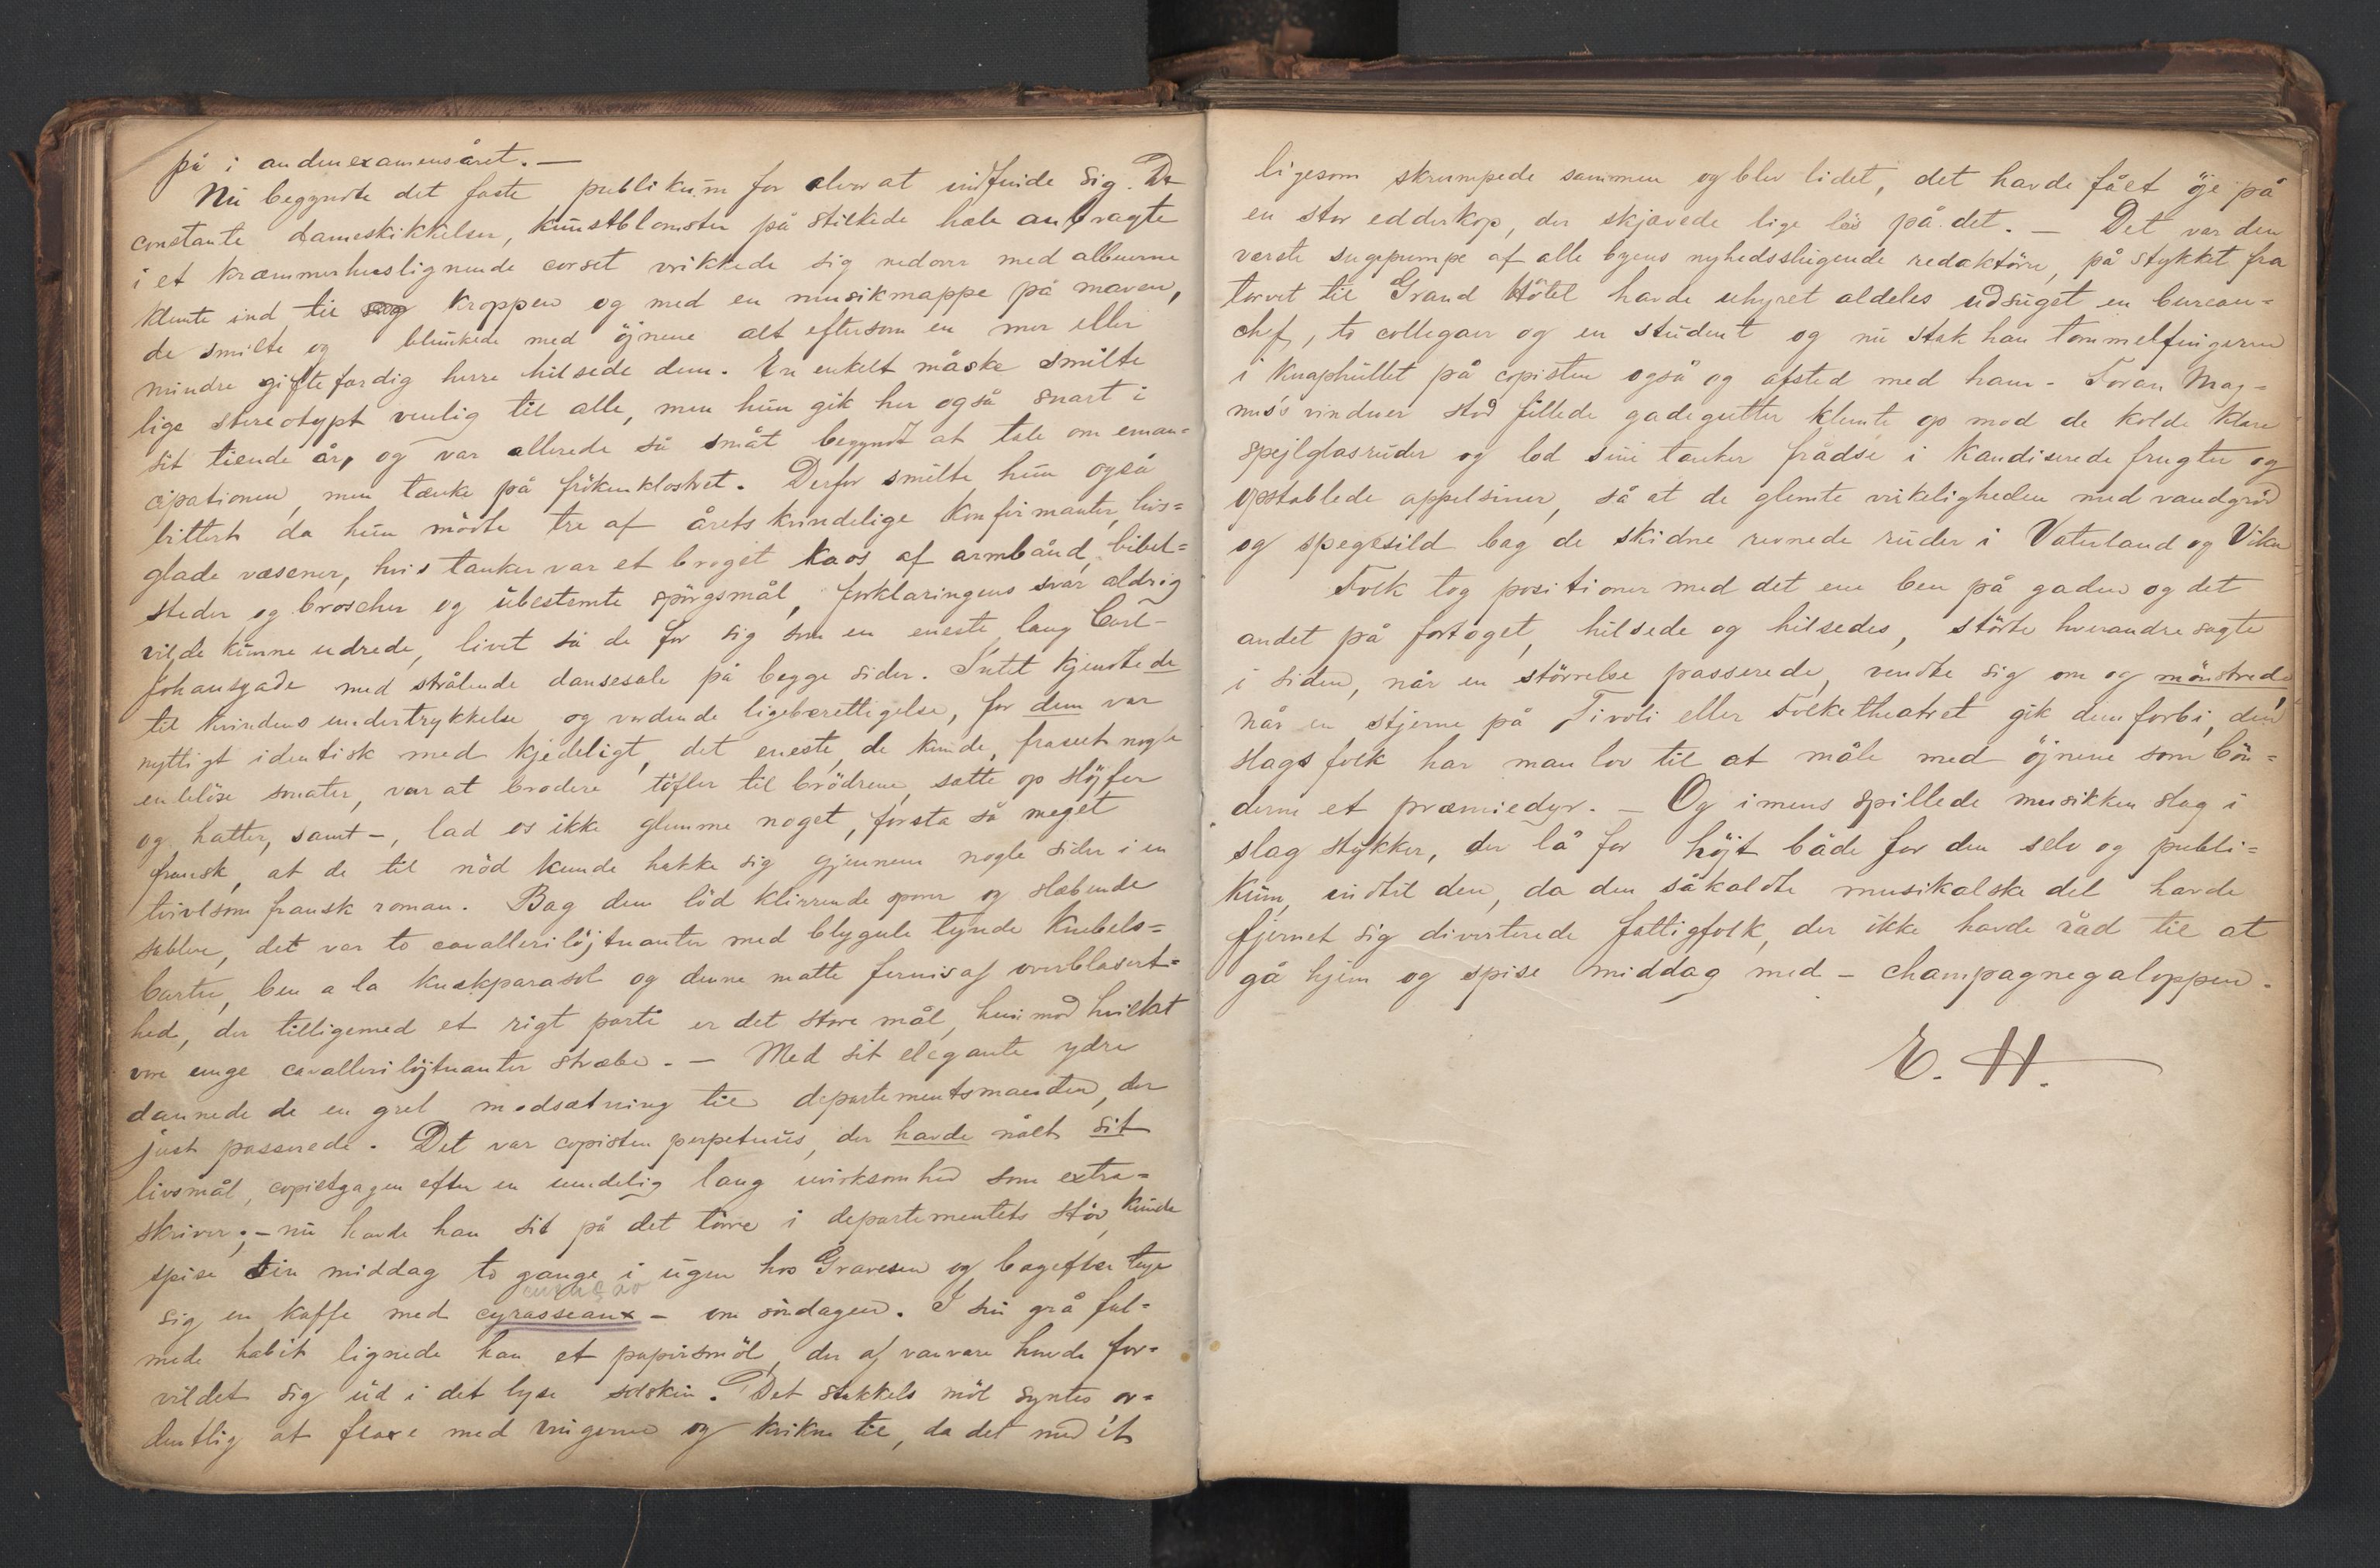 på i andenexamensåret. —
Nu begyndte det faste publikum for alvor at indfinde sig. De
constante dameskikkelser, kunstblomster på stilkede hæle anbragte
i et kræmmerhuslignende corset vrikkede sig nedover med albuerne
klemte ind til kroppen og med en musikmappe på maven,
de smilte og blunkede med öjnene alt eftersom en mer eller
mindre giftefærdig herre hilsede dem. En enkelt måske smilte
lige stereotypt venlig til alle, men hun gik her også snart i
sit tiende år, og var allerede så småt begyndt at tale om eman=
cipationen, men tænke på frökenklostret. Derfor smilte hun også
bittert da hun mödte tre af årets kvindelige konfirmanter, livs=
glade væsener, hvis tanker var et broget kaos af armbånd, bibel=
steder og broscher og ubestemte spörgsmål, forklaringens svar aldrig
vilde kunne udrede, livet så de for sig som en eneste lang Carl-
Johansgade med strålende dansesale på begge sider. Intet kjendte de
til kvindens undertrykkelse og vordende ligeberettigelse, for dem var
nyttigt identisk med kjedeligt, det eneste, de kunde, fraseet nogle
endelöse sonater, var at brodere töfler til brödrene, sætte op slöjfer
og hatter, samt —, lad os ikke glemme noget, forstå så meget
fransk, at de til nöd kunde hakke sig gjennem nogle sider i en
tvivlsom fransk roman. Bag dem löd klirrende sporer og slæbende
sabler, det var to cavallerilöjtnanter med blygule tynde knebels=
barter, ben a la kuskparasol og denne matte fernis af overblasert=
hed, der tilligemed et rigt parti er det store mål, hen imod hvilket
vore unge cavallerilöjtnanter stræbe. — Med sit elegante ydre
dannede de en grel modsætning til departementsmanden, der
just passerede. Det var copisten perpetuus, der havde nået sit
livsmål, copistgagen efter en uendelig lang virksomhed som extra=
skriver; — nu havde han sit på det törre i departementets stöv, kunde
spise sin middag to gange i ugen hos Gravesen og bagefter tage
sig en kaffe med cyrasseaux — om söndagen. I sin grå fal=
mede habit lignede han et papirsmöl, der af vanvare havde for=
vildet sig ud i det lyse solskin. Det stakkels möl syntes or=
dentlig at flaxe med vingerne og kvikne til, da det med ét
ligesom skrumpede sammen og blev lidet, det havde fået öje på
en stor edderkop, der skjævede lige lös på det. — Det var den
værste sugepumpe af alle byens nyhedsslugende redaktörer, på stykket fra
torvet til Grand Hôtel havde uhyret aldeles udsuget en bureau=
chef, to collegaer og en student og nu stak han tommelfingeren
i knaphullet på copisten også og afsted med ham. Foran Mag=
nus's vinduer stod fillede gadegutter klemte op mod de kolde klare
spejlglasruder og lod sine tanker frådse i kandiserede frugter og
opstablede appelsiner, så at de glemte virkeligheden med vandgröd
og spegesild bag de skidne revnede ruder i Vaterland og Viken
Folk tog positioner med det ene ben på gaden og det
andet på fortoget, hilsede og hilsedes, stödte hverandre sagte
i siden, når en störrelse passerede, vendte sig om og mönstrede
når en stjerne på Tivoli eller Folketheatret gik dem forbi, den
slags folk har man lov til at måle med öjnene som bön=
derne et præmiedyr. — Og imens spillede musikken slag i
slag stykker, der lå for höjt både for den selv og publi=
kum, indtil den, da den såkaldte musikalske del havde
fjernet sig diverterede fattigfolk, der ikke havde råd til at
gå hjem og spise middag med — champagnegaloppen.
E. H.